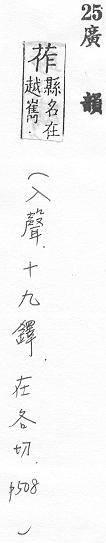 25廣韻
莋縣名在
越嶲.
(入聲.十九鐸.在各切.p508)